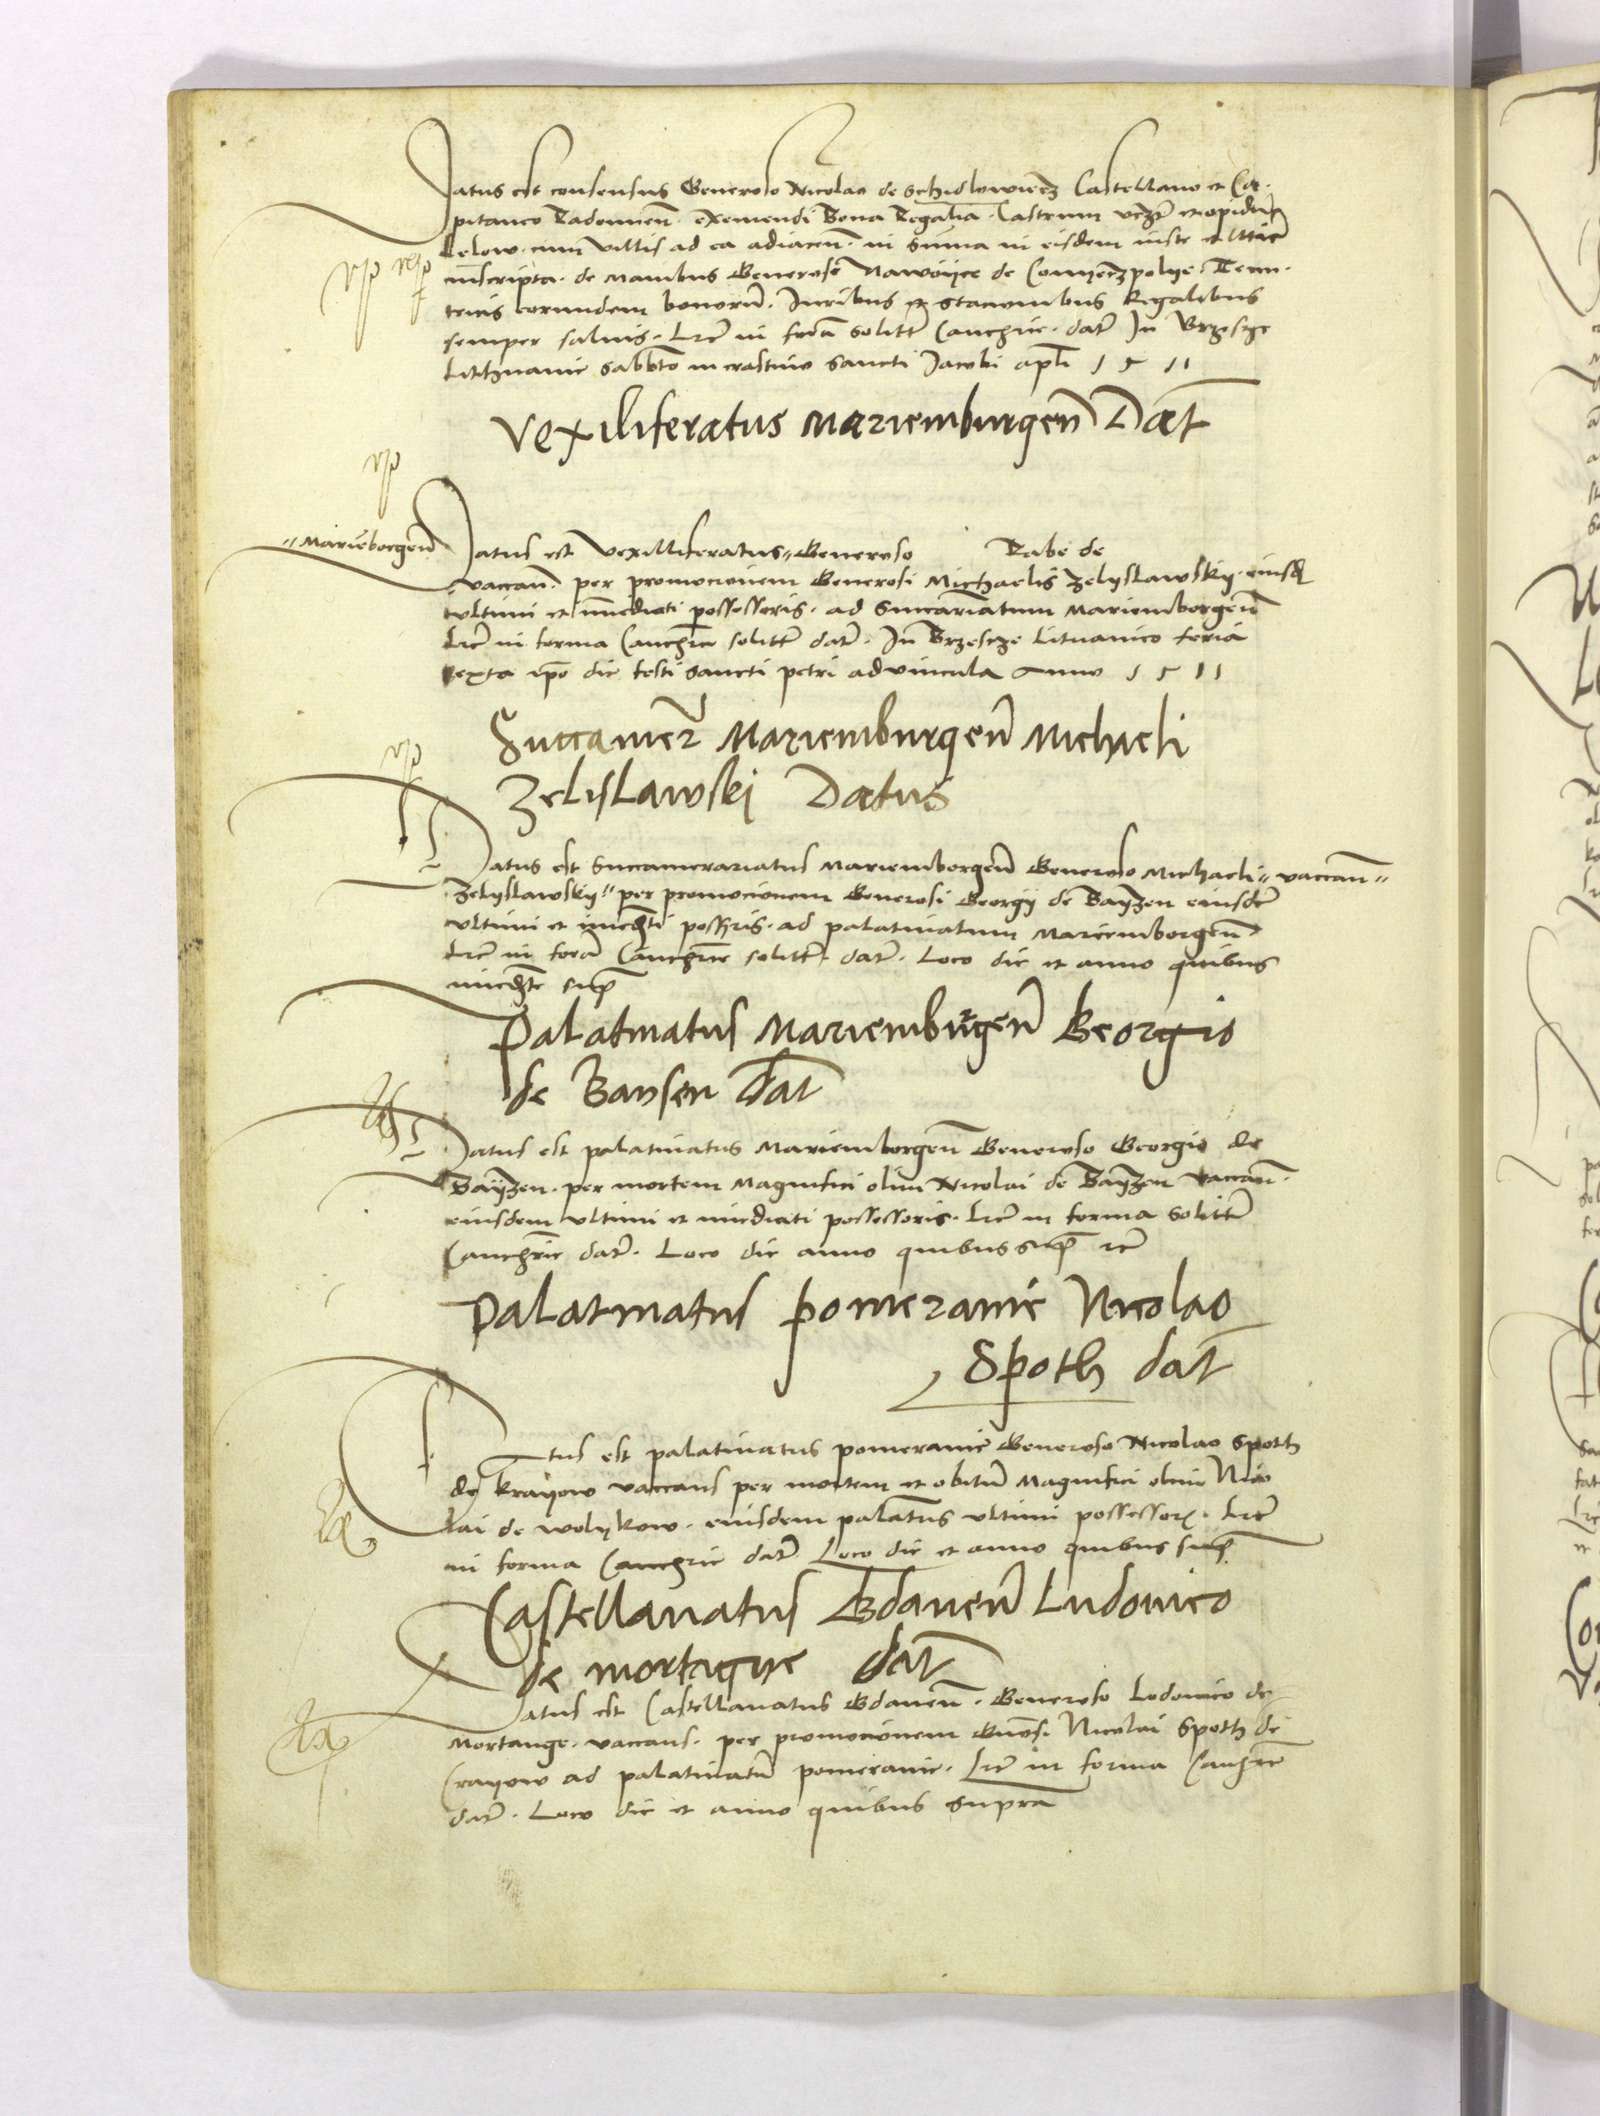 Datus est consensus Generoso Nicolao de Schidlowiecz Castellano et Ca-
pitaneo Radomien̄. exemendi Bona Regalia. Castrum et opidum
Lelow. cum villis ad ea adiacen̄. in sūma in eisdem iuste et
inscripta. de manibus Generose Nawoyce de Conyeczpolye. Tenu-
tricis eorundem bonorū. Iuribus et stacionibus Regalibus
semper salvis. Lrē in forā solitē Canchrie. datē In Brzescze
Lithuanie sabbto in crastino sancti Jacobi apli 1511
Vexiliferatus Mariemburgen̄ Dat̄
"Mariēborgen̄
Datus est Vexilliferatus " Generoso Rabe de
vaccan̄. per promocionem Generosi Michaelis Zelyslawsky. eiusd
ultimi et īmediati possessoris. ad Succariatum Mariemborgen̄
Lrē in forma Canchrie solitē datē. In Brzescze Lituanico feria
sexta ipō die festi sancti petri advincula Anno 1511
Succamer̄ Mariemburgen̄ Michaeli
Zelislawski Datus
Datus est Succamerariatus Mariemborgen̄ Generoso Michaeli " vaccan̄ "
Zelyslawsky " per promocionem Generosi Georgij de Bayzen eiusdē
ultimi et possris. ad palatinatum Mariemborgen̄
Lrē in forā Canchrie solitē datē. Loco die et anno quibus
sup̄
Palatinatus Mariemburgen̄ Georgio
de Baysen dat̄
Datus est palatinatus Mariemborgen̄ Generoso Georgio de
Bayzen. per mortem Magnifici olim Nicolai de Bayzen vaccan̄.
eiusdem ultimi et imediati possessoris. Lrē in forma solitē
Canchrie datē. Loco die anno quibus sup̄ rē
Palatinatus pomeranie Nicolao
Spoth dat̄
Datus est palatinatus pomeranie Generoso Nicolao Spoth
de krayow vaccans per mortem et obitum Magnifici olim Nico
lai de wolykow. eiusdem palatnus ultimi possessor. Lrē
in forma Canchrie datē Loco die et anno quibus sup̄
Castellanatus Gdanen̄ Ludovico
de mortagne dat̄
Datus est Castellanatus Gdanen̄. Generoso Lodovico de
Mortange. vaccans. per promocionem Gnōsi Nicolai Spoth de
Crayow ad palatinatū pomeranie. Lrē in forma Canchrie
datē. Loco die et anno quibus supra